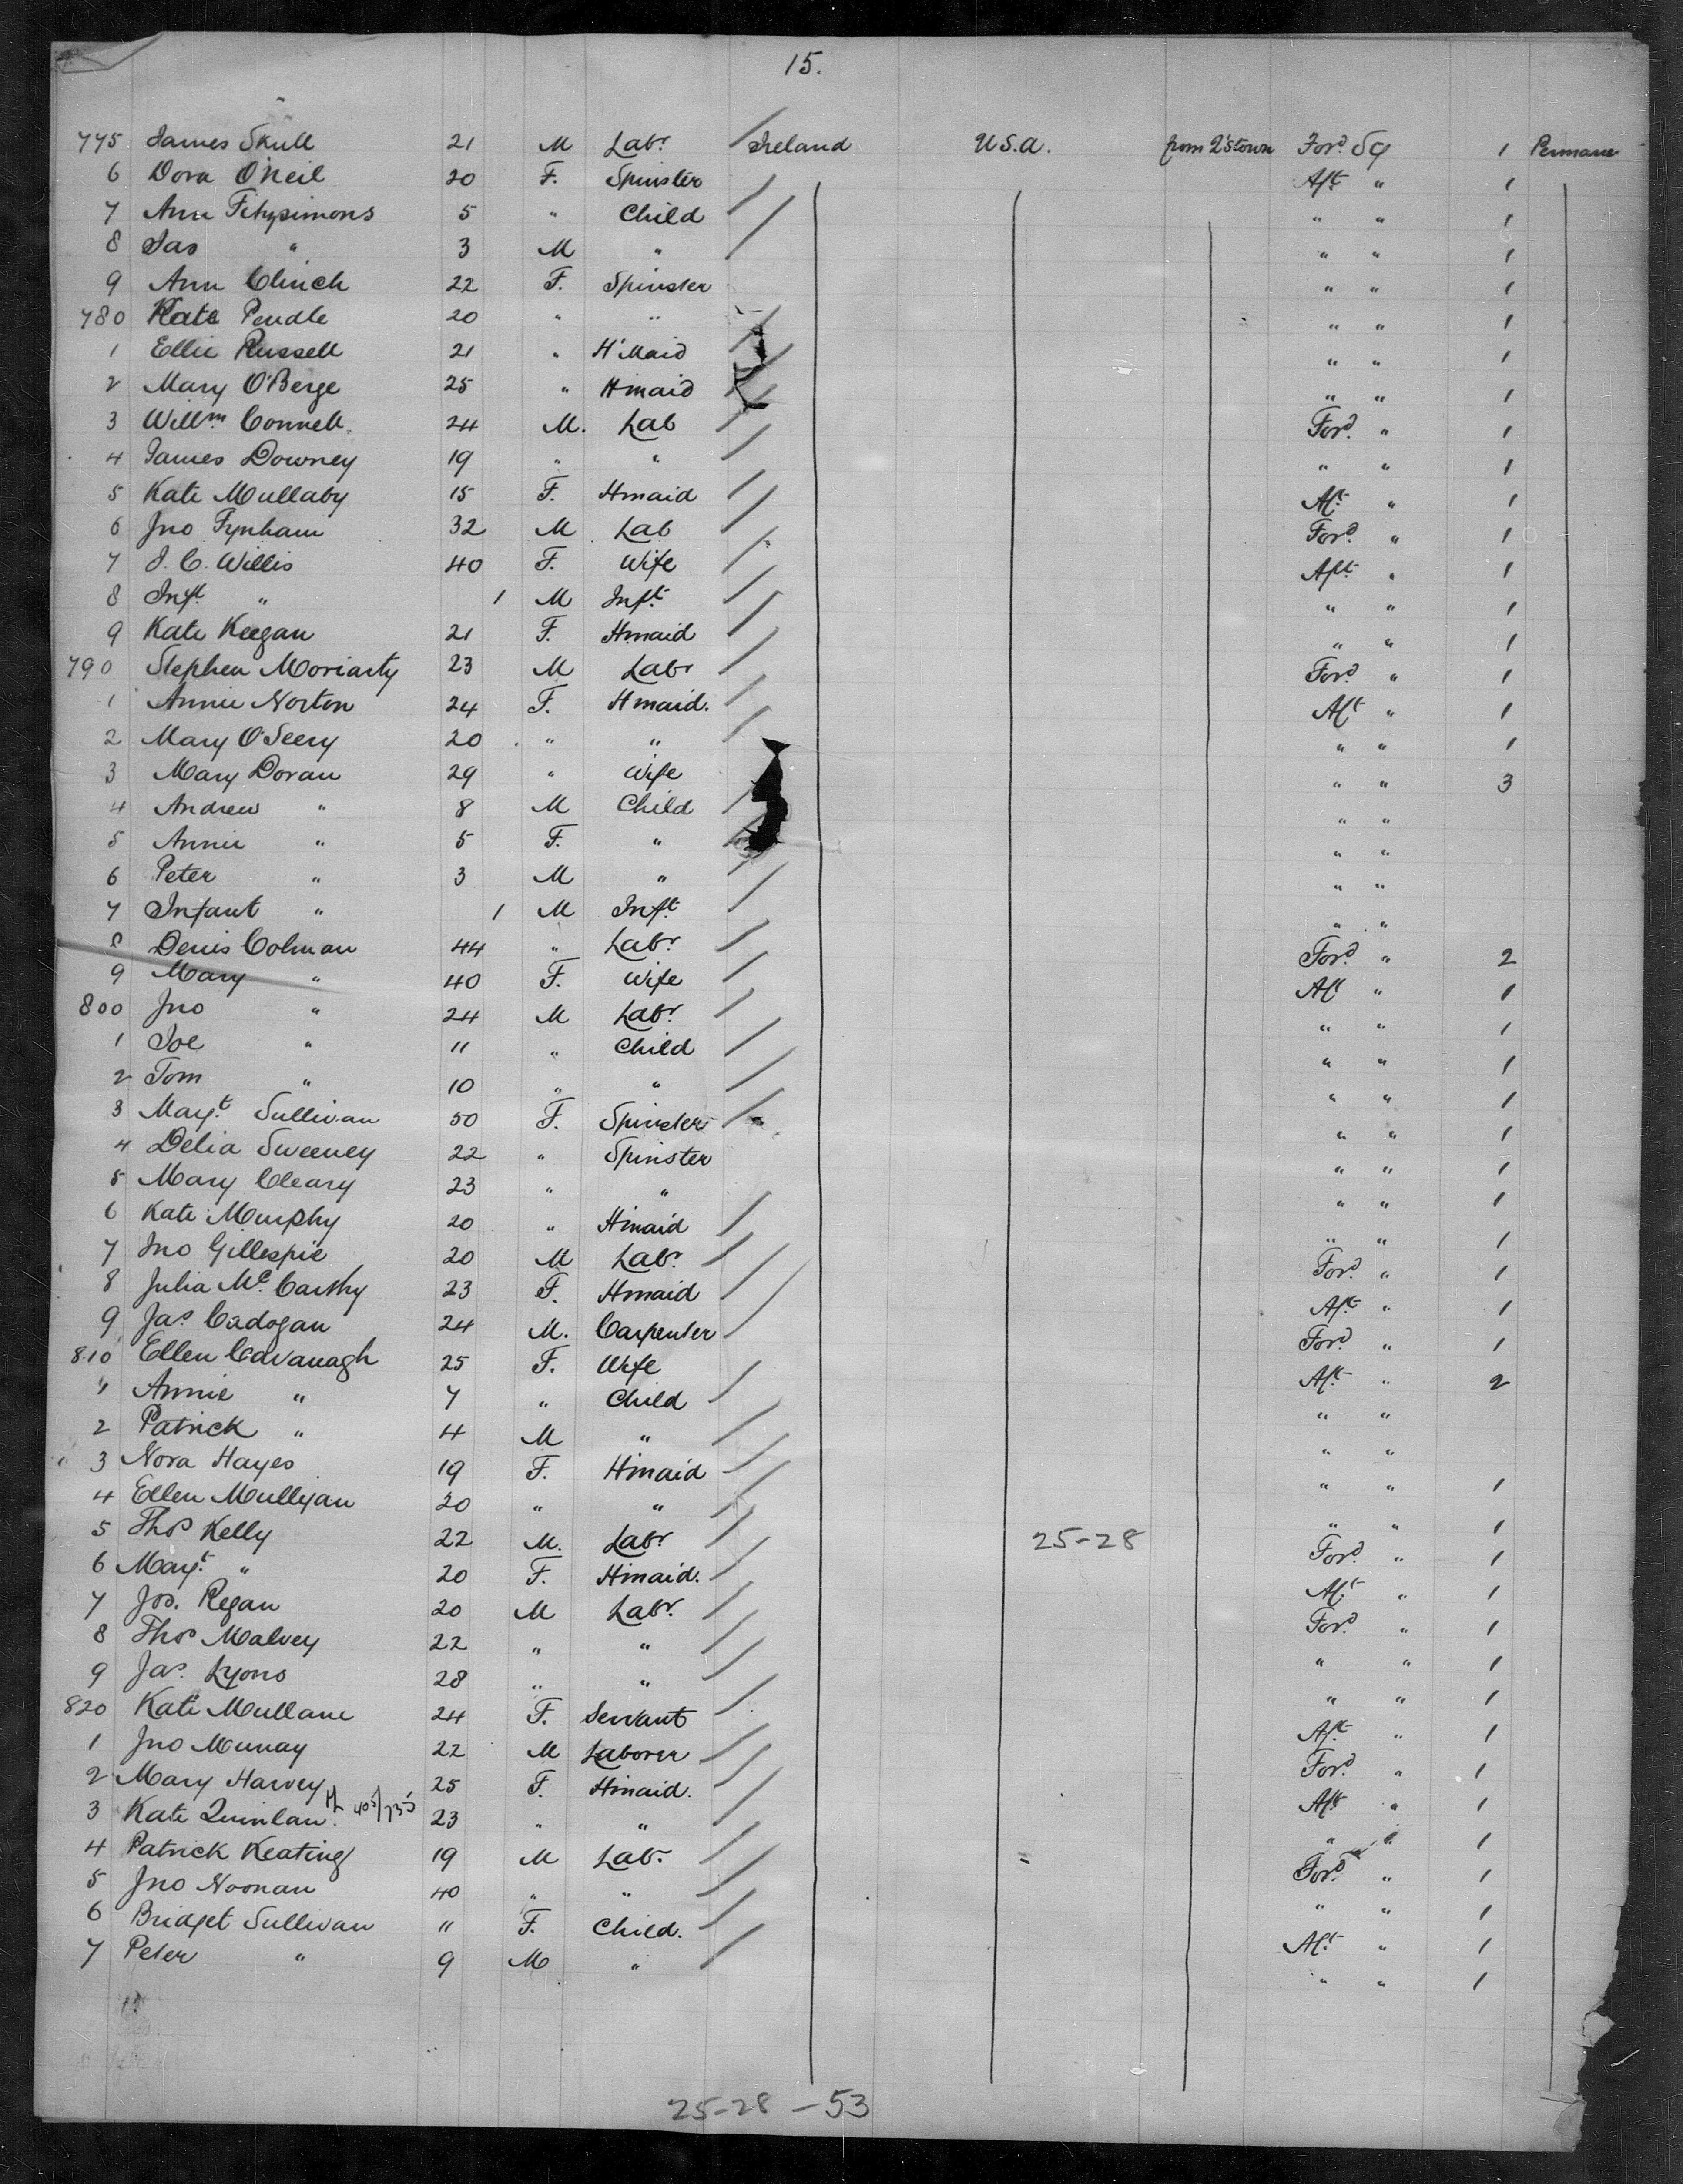 15.
775 James Skull 21 M Labr Ireland U.S.A. from Q'stown Ford Sg 1 Permane
6 Dora O'Neil 20 F. Spinster Aft " 1
7 Ann Fitzsimons 5 " Child " " 1
8 Jas " 3 M " " " 1
9 Ann Clinch 22 F. Spinster " " 1
780 Kate Pendle 20 " " " " 1
1 Ellie Russell 21 " H'Maid " " 1
2 Mary O'Berge 25 " Hmaid " " 1
3 Willm Connell 24 M. Lab Ford " 1
4 James Downey 19 " " " " 1
5 Kate Mullaby 15 F. Hmaid Aft " 1
6 Jno Fynham 32 M Lab Ford " 1
7 J. C. Willis 40 F. Wife Aft " 1
8 Inft " 1 M Inft " " 1
9 Kate Keegan 21 F. Hmaid " " 1
790 Stephen Moriarty 23 M Labr Ford " 1
1 Annie Norton 24 F. Hmaid. Aft " 1
2 Mary O'Seery 20 " " " " 1
3 Mary Doran 29 " Wife " " 3
4 Andrew " 8 M Child " "
5 Annie " 5 F. " " "
6 Peter " 3 M " " "
7 Infant " 1 M Inft " "
8 Denis Colman 44 " Labr Ford " 2
9 Mary " 40 F. Wife Aft " 1
800 Jno " 24 M Labr " " 1
1 Joe " 11 " Child " " 1
2 Tom " 10 " " " " 1
3 Margt Sullivan 50 F. Spinster " " 1
4 Delia Sweeney 22 " Spinster " " 1
5 Mary Cleary 23 " " " " 1
6 Kate Murphy 20 " Hmaid " " 1
7 Jno Gillespie 20 M Labr Ford " 1
8 Julia McCarthy 23 F. Hmaid Aft " 1
9 Jas Cadogan 24 M. Carpenter Ford " 1
810 Ellen Cavanagh 25 F. Wife Aft " 2
11 Annie " 7 " Child " "
2 Patrick " 4 M " " "
3 Nora Hayes 19 F. Hmaid " " 1
4 Ellen Mulligan 20 " " " " 1
5 Thos Kelly 22 M. Labr 25-28 Ford " 1
6 Margt " 20 F. Hmaid. Aft " 1
7 Jos. Regan 20 M Labr Ford " 1
8 Thos Malvey 22 " " " " 1
9 Jas. Lyons 28 " " " " 1
820 Kate Mullane 24 F. Servant Aft " 1
1 Jno Murray 22 M Laborer Ford " 1
2 Mary Harvey 25 F. Hmaid. Aft " 1
3 Kate Quinlan 23 " " " " 1
4 Patrick Keating 19 M Lab. Ford " 1
5 Jno Noonan 40 " " " " 1
6 Bridget Sullivan 11 F. Child. Aft " 1
7 Peter " 9 M " " " 1
25-28 - 53